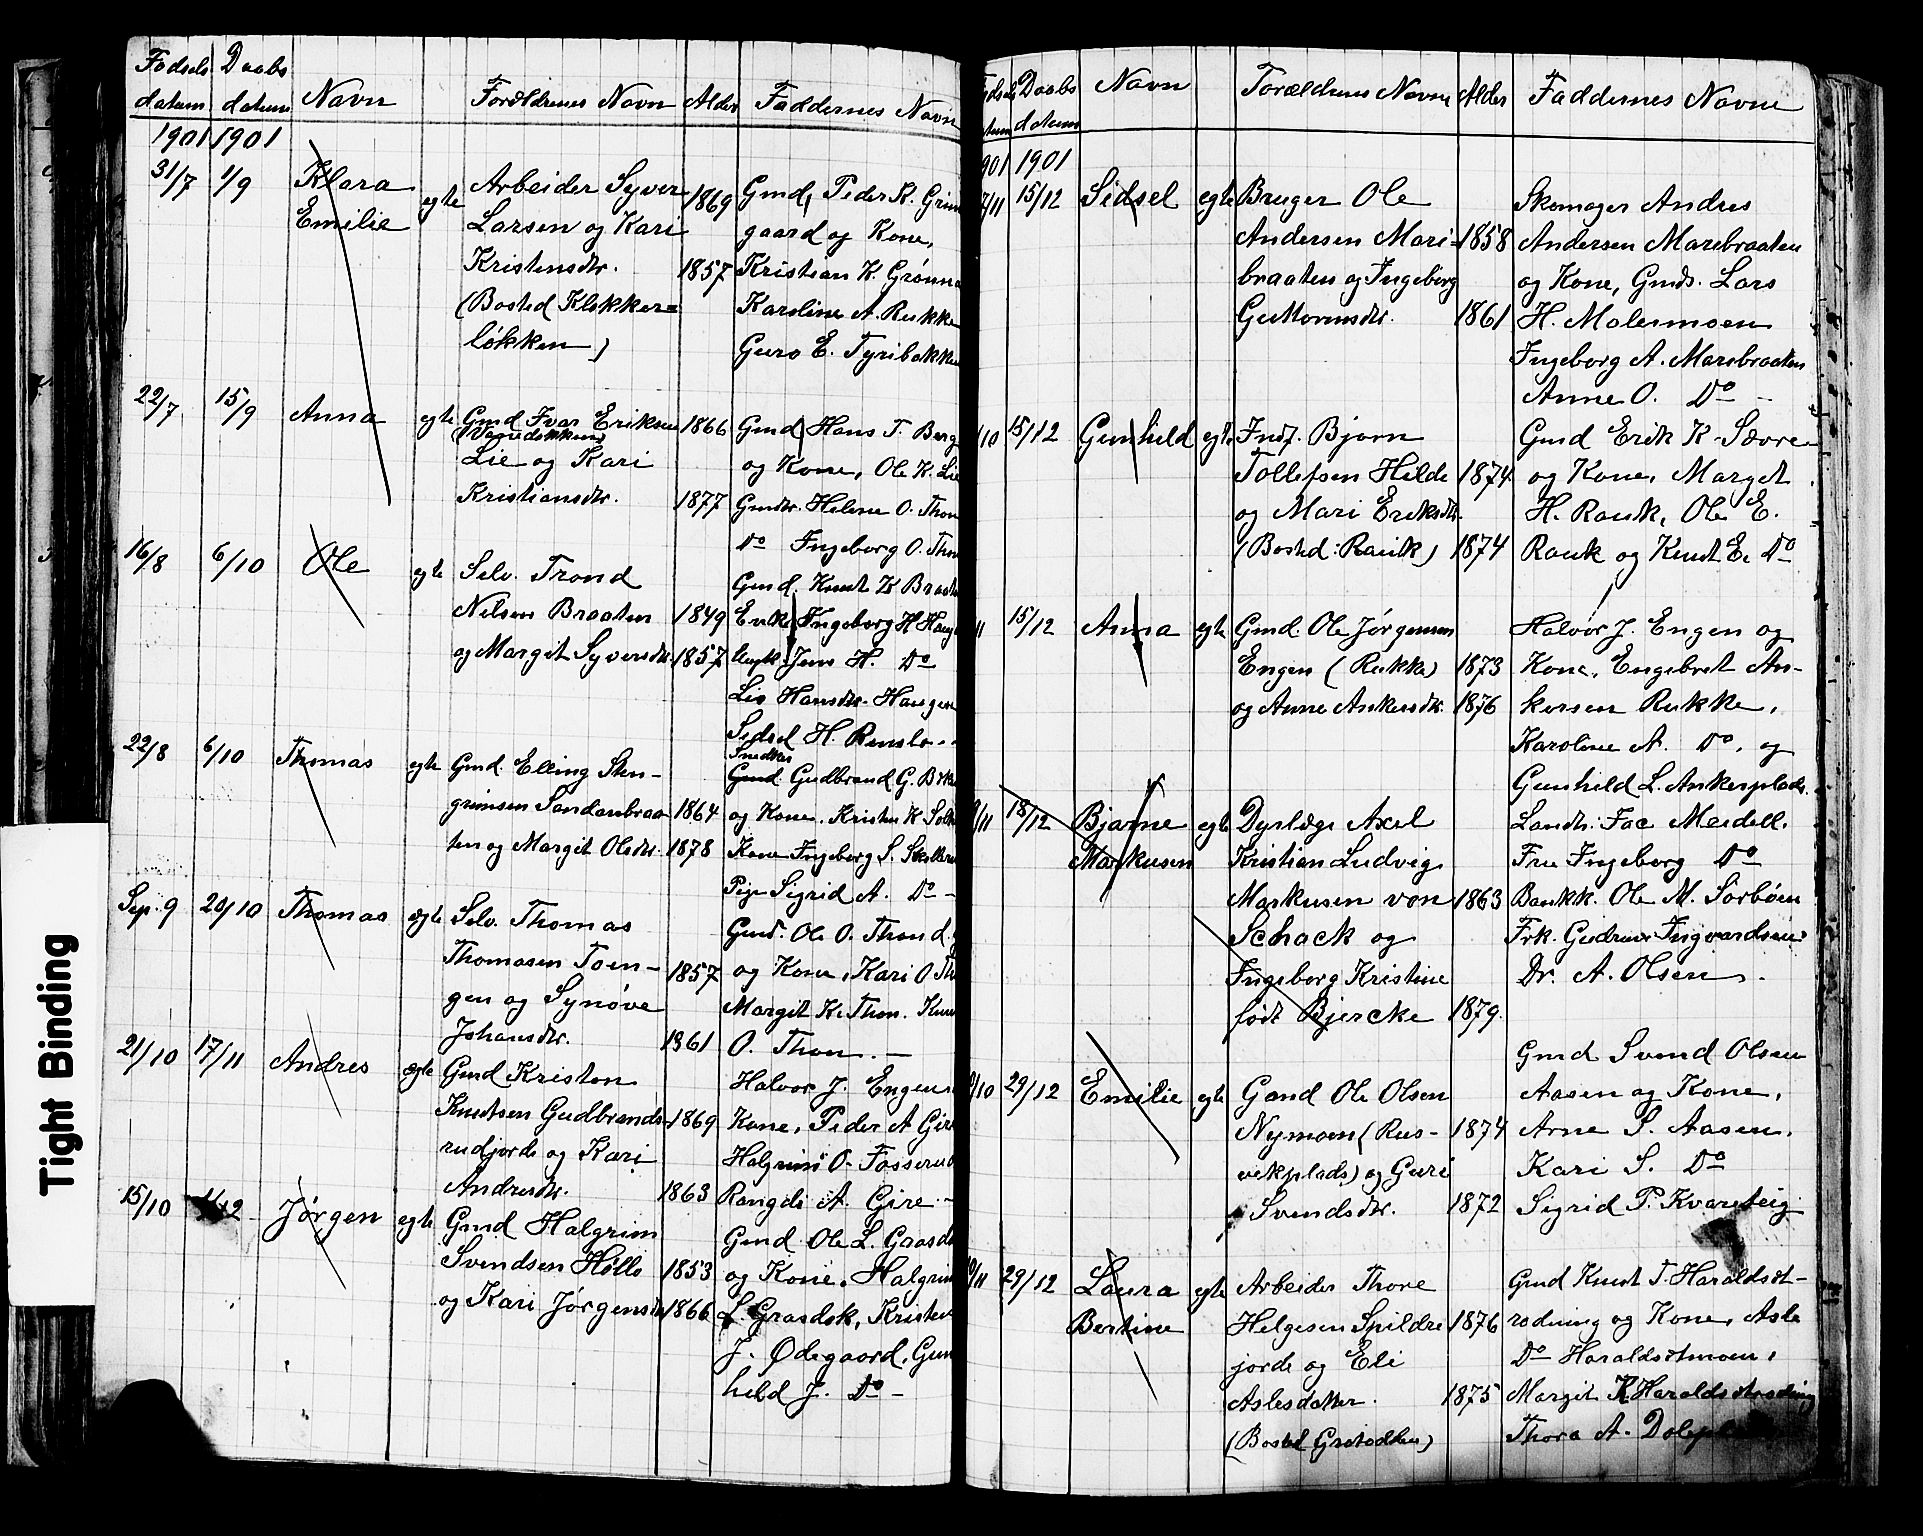 Fødsels datum
Daabs datum
Navn
Forældrenes Navn
Alder
Faddernes Navn
1901 1901
31/7 1/9 Klara Emilie egte
Arbeider Syver
Larsen og Kari
Kristensdtr.
(Bosted Klokker=
løkken)
1869
1857
Gmd, Peder K. Grim
gaard og Kone,
Kristian K. Grønna
Karoline A. Rukke
Guro E. Tyribakke
22/7 15/9 Anna egte
Gmd Ivar Eriksen
Lie og Kari
Kristiansdtr.
1866
1877
Gmd Hans T. Berg
og Kone, Ole K. Lie
Gmdtr. Helene O. Thon
Do Ingeborg O. Thon
16/8 6/10 Ole egte
Selv. Trond
Nelsen Braaten
og Margit Syversdtr.
1849
1857
Gmd. Knut K Braate
Enke Ingeborg H Haug
Ungk. Jens H. Do
Liv Hansdtr. Haugen
Sidsel H. Renslo
22/8 6/10 Thomas egte
Gmd Elling Sten-
grimsen Sandanbraa-
ten og Margit Olsdtr.
1864
1878
Snedker
Gmd Gudbrand G.
og Kone, Kristen K
Kone Ingeborg S.
Pige Sigrid A. Do –
Sep. 9 20/10 Thomas egte
Selv. Thomas
Thomasen Toen-
gen og Synøve
Johansdtr.
1857
1861
Gmd. Ole O. Thon d.
og Kone, Kari O. Th
Margit K. Thon. Knu
O. Thon. –
21/10 17/11 Andres egte
Gmd Kristen
Knutsen Gudbrands-
rudjorde og Kari
Andresdtr.
1869
1863
Halvor J. Engen
Kone, Peder A Gire
Halgrim O. Fosserud
Rangdi A. Gire –
15/10 Jørgen egte
Gmd Halgrim
Svendsen Hollo
og Kari Jørgensdtr
1853
1866
Gmd Ole L. Grasdo
og Kone, Halgrim
L. Grasdok, Kristen
J. Ødegaard, Gun
hild J. Do –
Tight Binding
Daabs datum
Navn
Forældrenes Navne
Alder
Faddernes Navne
901 1901
7/11 15/12 Sidsel egte
Bruger Ole
Andersen Mari-
braaten og Ingeborg
Guttormsdtr.
1858
1861
Skomager Andres
Andersen Marebraaten
og Kone, Gmds. Lars
H. Molermoen
Ingeborg A. Marebraaten
Anne O. Do –
/10 15/12 Gunhild egte
Inds. Bjørn
Tollefsen Hilde
og Mari Eriksdtr.
(Bosted: Rauk)
1874
1874
Gmd Erik K Sævre
og Kone, Margit
H. Rauk, Ole E.
Rauk og Knut E. Do
11 15/12 Anna egte
Gmd. Ole Jørgensen
Engen (Rukke)
og Anne Ankersdtr.
1873
1876
Halvor J. Engen og
Kone, Engebret An-
kersen Rukke,
Karoline A. Do, og
Gunhild L. Ankerplads.
/11 18/12 Bjarne Markusen egte
Dyrlæge Axel
Kristian Ludvig
Markusen von
Schack og
Ingeborg Kristine
født Bjercke
1863
1879.
Landh. Fae Meidell.
Fru Ingeborg Do
Bankk. Ole M. Sørbøen
Frk. Gudrun Ingvardsen.
Dr. A. Olsen.
/10 29/12 Emilie egte
Gmd Ole Olsen
Nymoen (Rus-
vekplads) og Guri
Svendsdtr.
1874
1872
Gmd Svend Olsen
Aasen og Kone,
Arne S. Aasen,
Kari S. Do
Sigrid P. Kvarteig
/11 29/12 Laura Bertine egte
Arbeider Thore
Helgesen Spildre
jorde og Eli
Aslesdatter.
1876
1875
Gmd Knut T. Haraldset-
rodning og Kone, Asle
Do Haraldsetmoen,
Margit K Haraldsetrodning
Thora A.